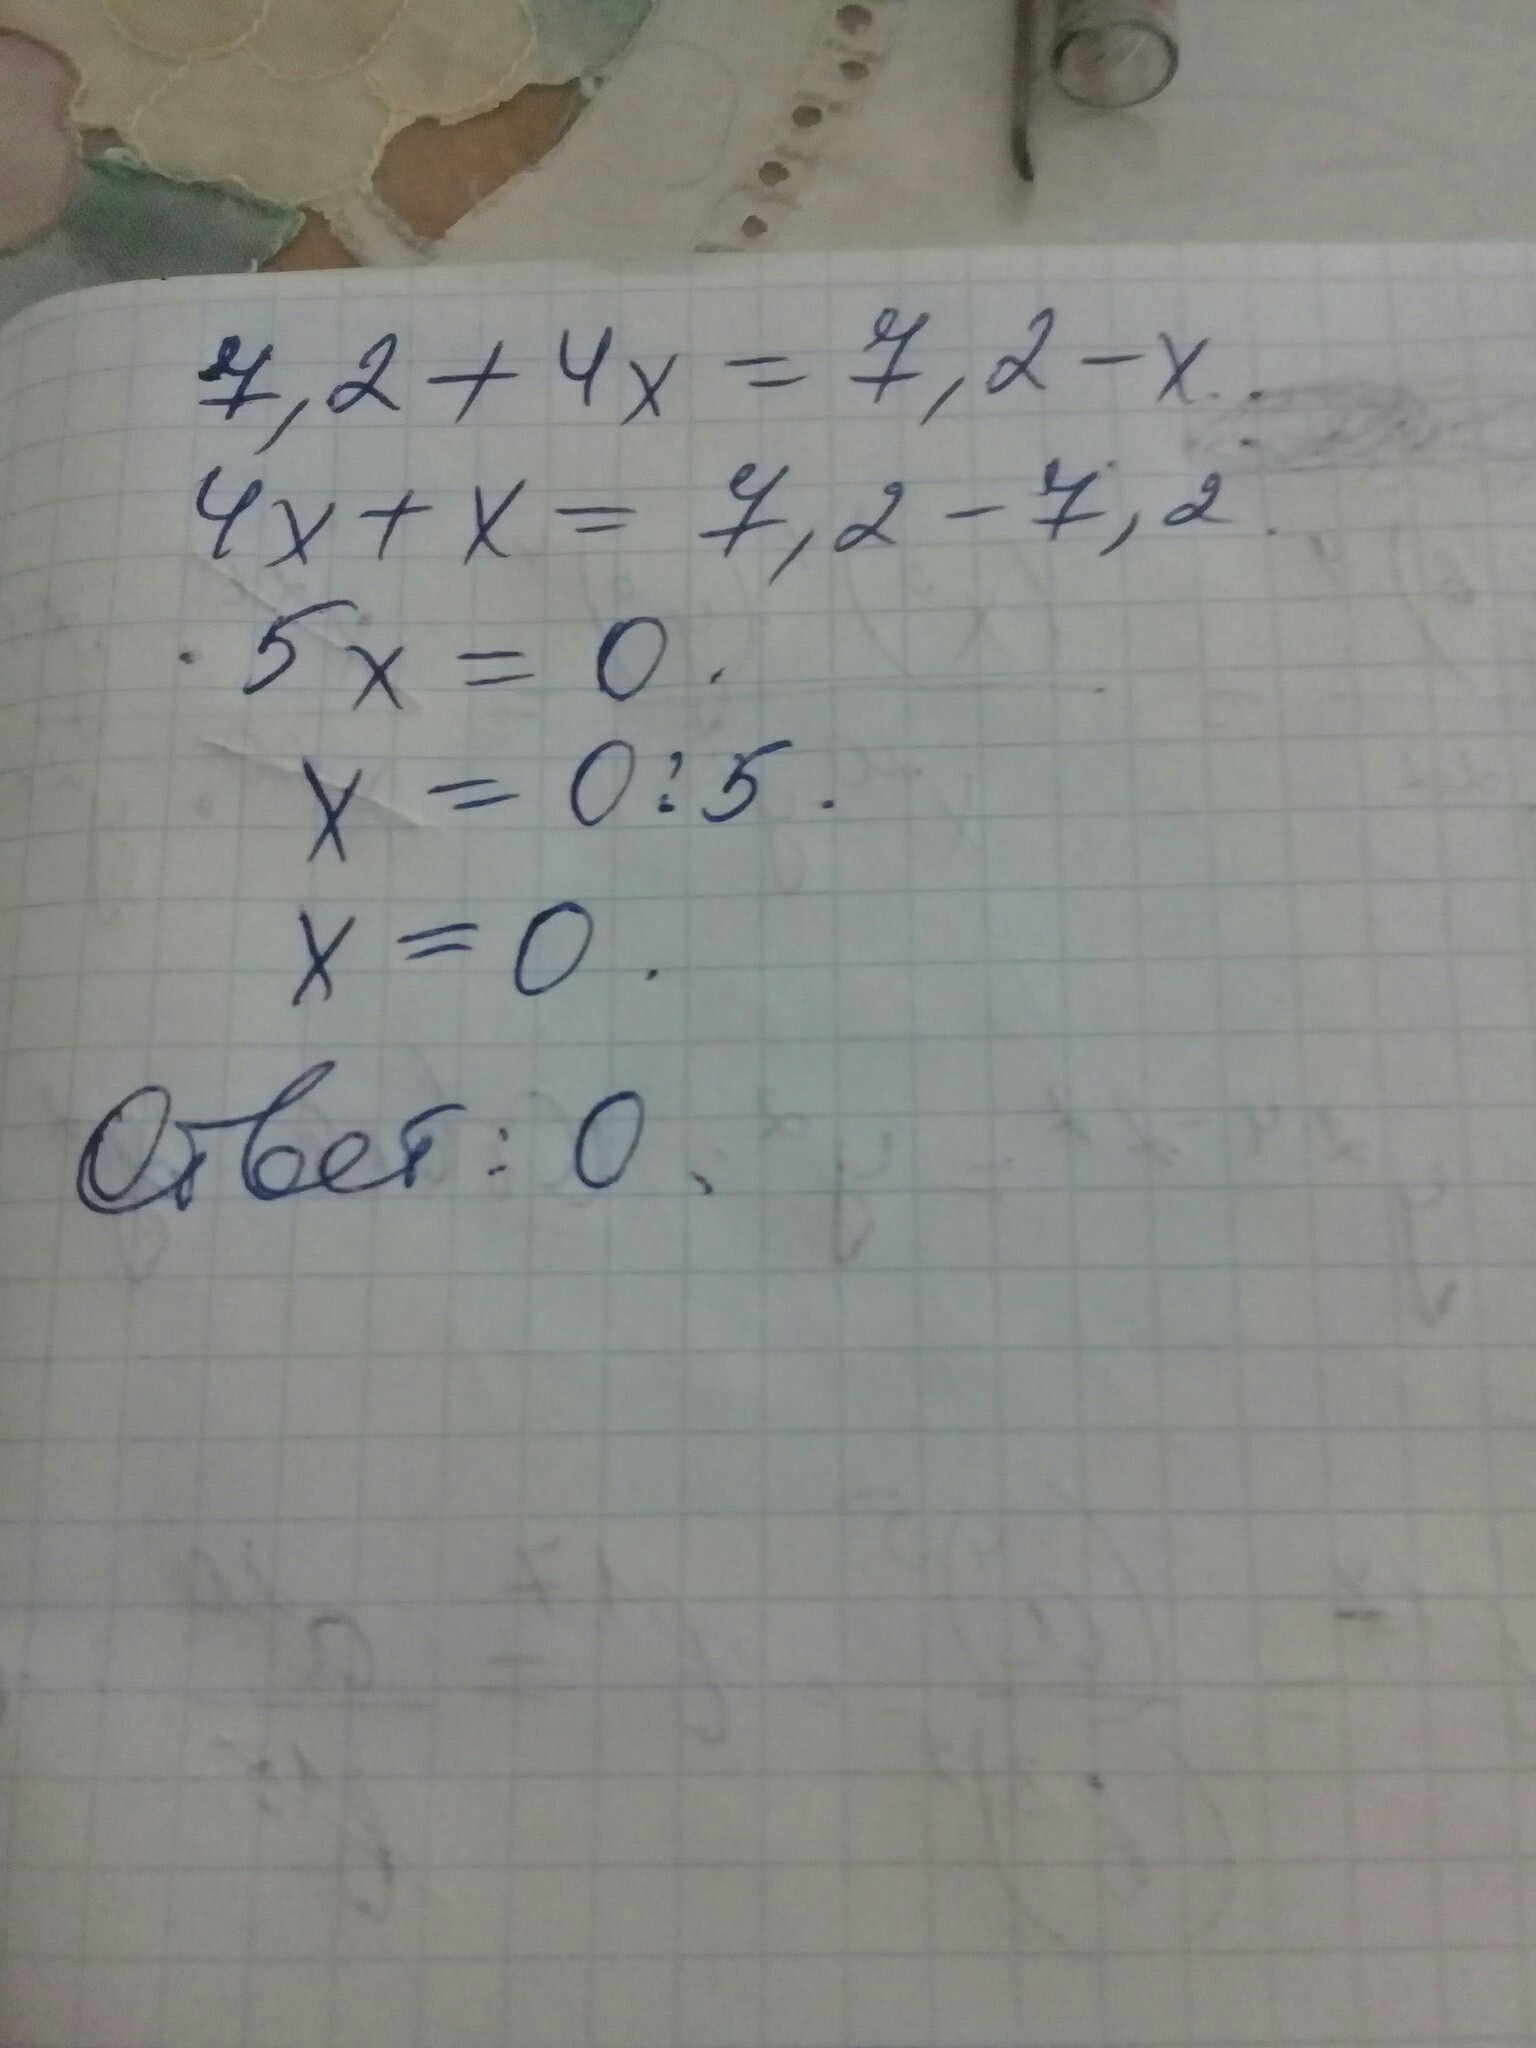 7,2 + 4x = 7,2 - x.
4x + x = 7,2 - 7,2.
5x = 0.
x = 0 : 5.
x = 0.
Ответ: 0.